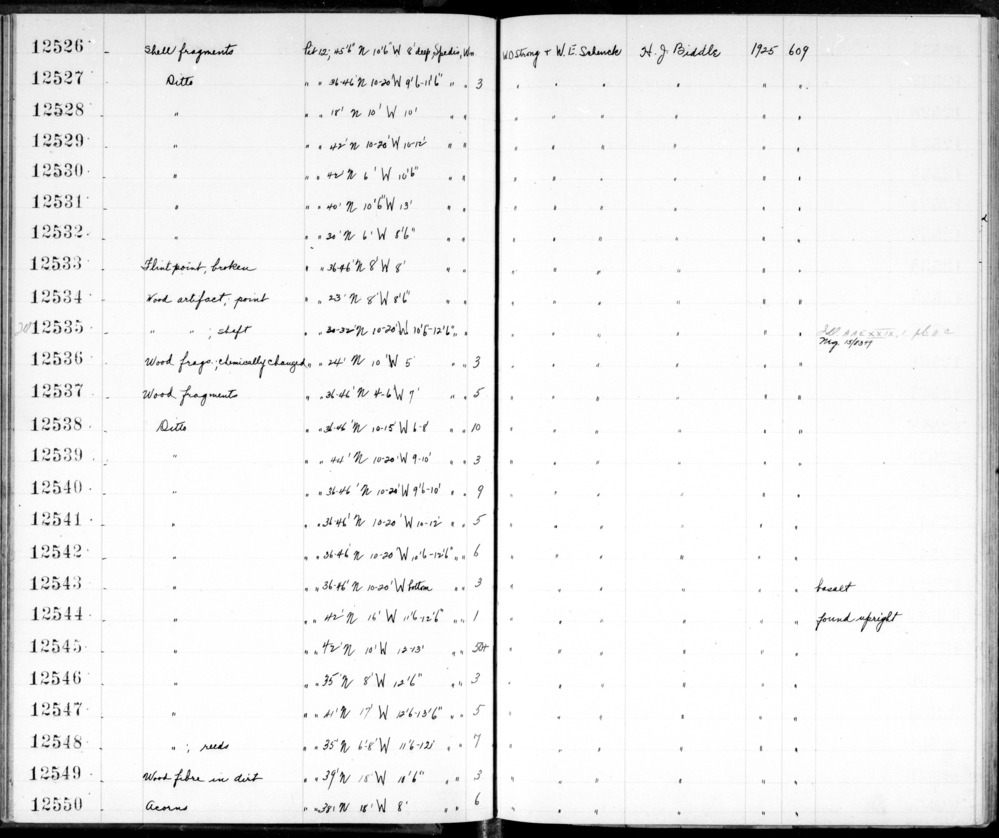 12526 Shell fragments Pit 12; 45'6" N 10'6" W 8' deep; Spedis, Wn W.D. Strong + W.E. Schenck H. J. Biddle 1925 609
12527 Ditto " " 36-46' N 10-20' W 9'6-11'6" " " 3 " " " " " "
12528 " " " 18' N 10' W 10' " " " " " " " "
12529 " " " 42' N 10-20' W 10-12' " " " " " " " "
12530 " " " 42' N 6' W 10'6" " " " " " " " "
12531 " " " 40' N 10'6" W 13' " " " " " " " "
12532 " " " 30' N 6' W 8'6" " " " " " " " "
12533 Flint point, broken " " 36-46' N 8' W 8' " " " " " " " "
12534 Wood artifact, point " " 23' N 8' W 8'6" " " " " " " " "
12535 " " ; shaft " " 30-32' N 10-20' W 10'6-12'6" " " " " " " " "
Neg 15/
12536 Wood frags.; chemically changed " " 24' N 10' W 5' " " 3 " " " " " "
12537 Wood fragments " " 36-46' N 4-6' W 7' " " 5 " " " " " "
12538 Ditto " " 36-46' N 10-15' W 6-8' " " 10 " " " " " "
12539 " " " 44' N 10-20' W 9-10' " " 3 " " " " " "
12540 " " " 36-46' N 10-20' W 9'6-10' " " 9 " " " " " "
12541 " " " 36-46' N 10-20' W 10-12' " " 5 " " " " " "
12542 " " " 36-46' N 10-20' W 10'6-12'6" " " 6 " " " " " "
12543 " " " 36-46' N 10-20' W bottom " " 3 " " " " " " basalt
12544 " " " 42' N 16' W 11'6-12'6" " " 1 " " " " " " found upright
12545 " " " 42' N 10' W 12-13' " " 50+ " " " " " "
12546 " " " 35' N 8' W 12'6" " " 3 " " " " " "
12547 " " " 41' N 17' W 12'6-13'6" " " 5 " " " " " "
12548 " ; reeds " " 35' N 6-8' W 11'6-12' " " 7 " " " " " "
12549 Wood fibre in dirt " " 39' N 15' W 10'6" " " 3 " " " " " "
12550 Acorns " " 38' N 18' W 8' " " 6 " " " " " "